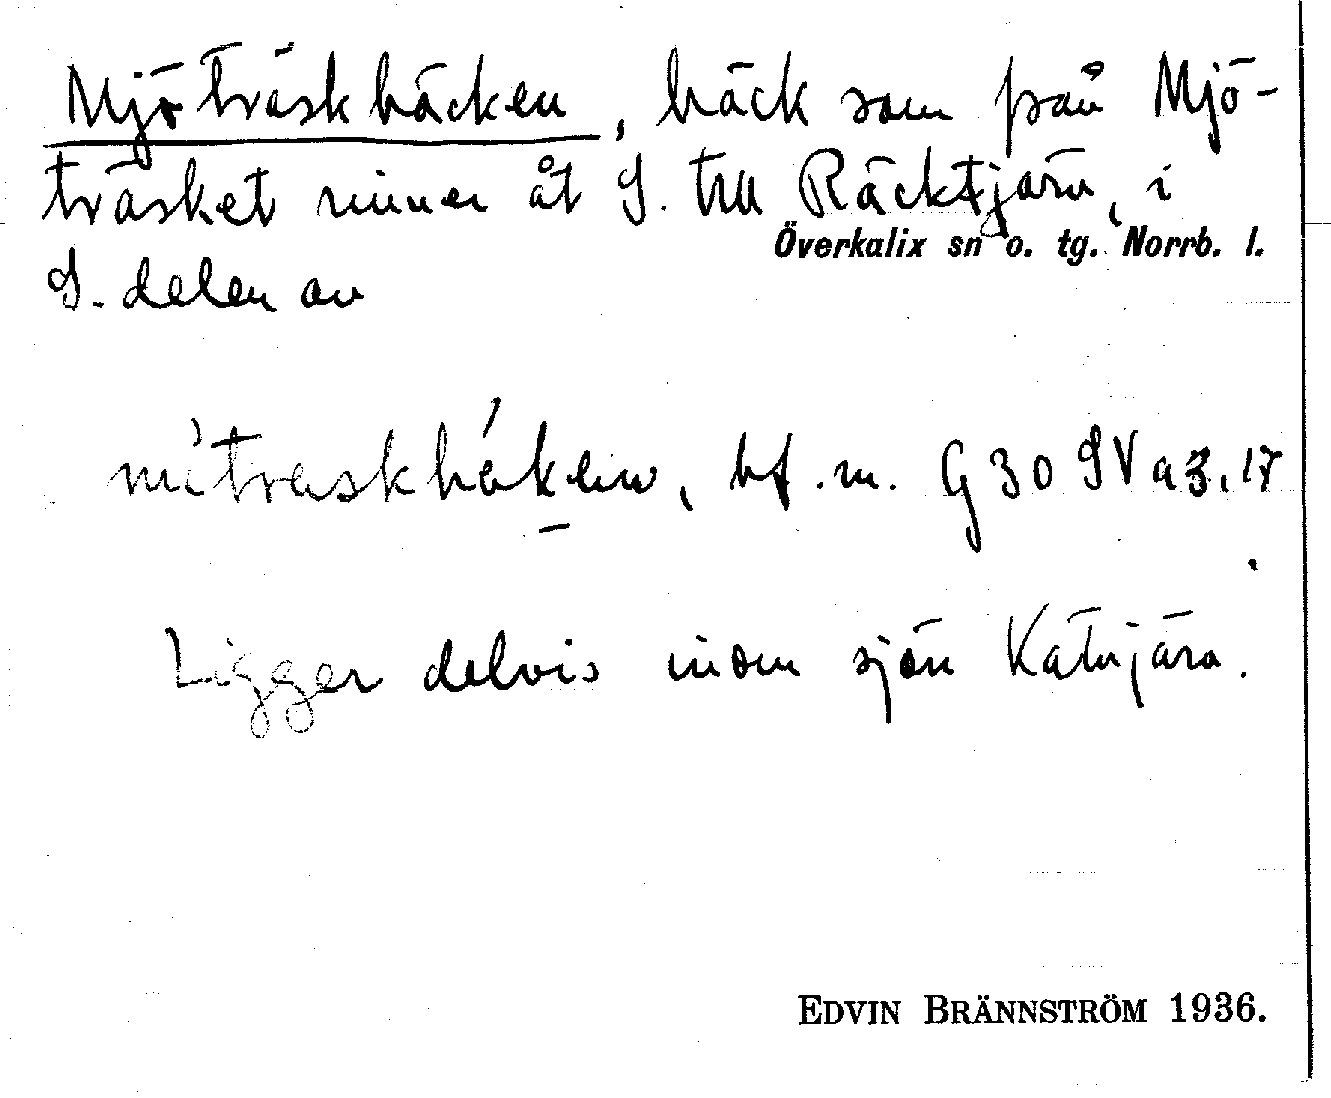 Mjöträskbäcken, bäck som från Mjö-
träsket rinner åt S. till Räcktjärn, i
Överkalix sn o. tg. Norrb. l.
S. delen av
bf. m. G 30 SV a 3. 17
Ligger delvis inom sjön
EDVIN BRÄNNSTRÖM 1936.